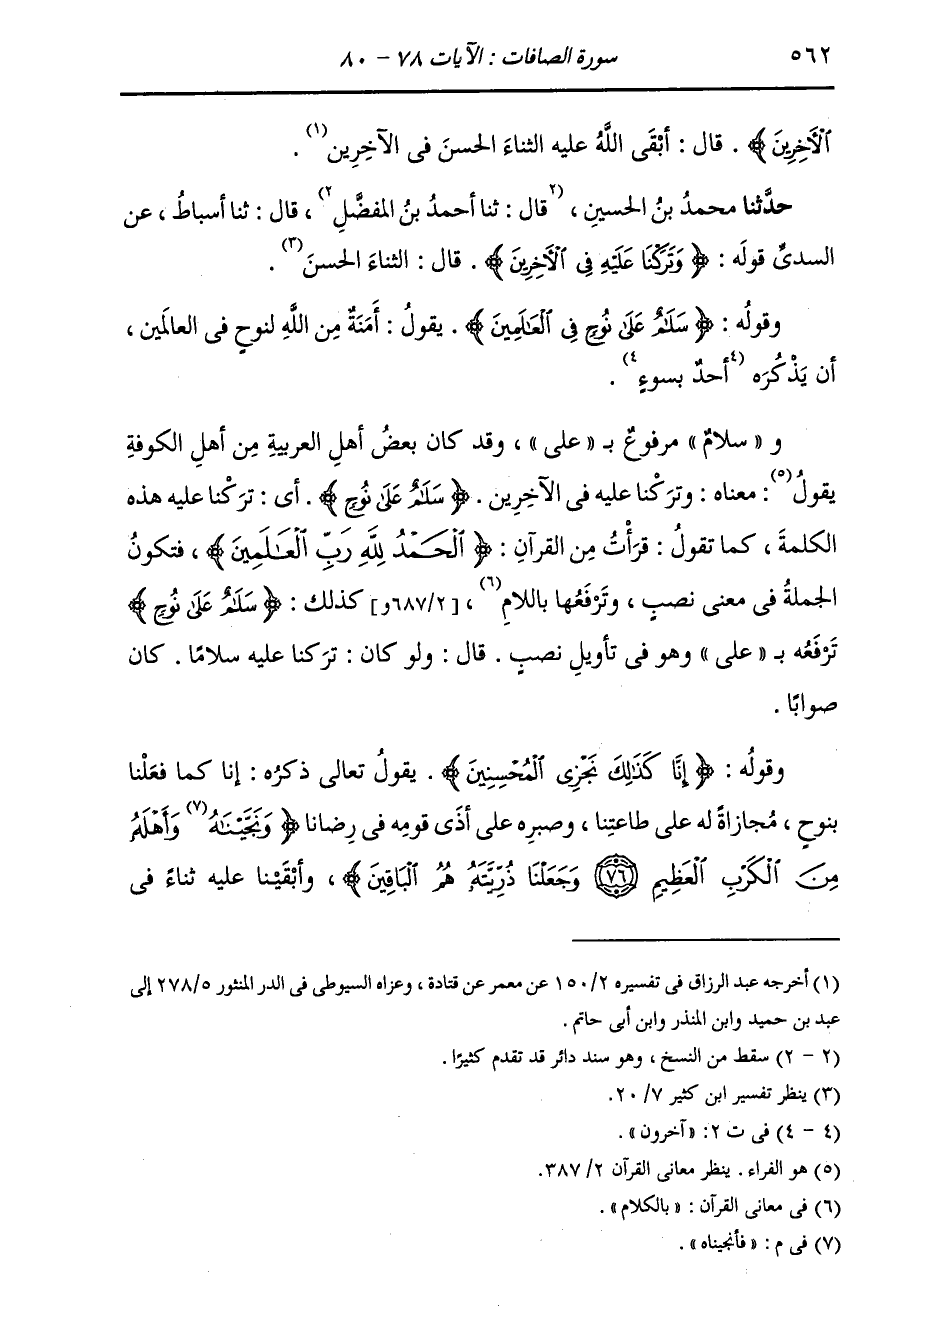 ٥٦٢ سورة الصافات : الآيات ٧٨ - ٨٠
ٱلْأَخِرِينَ ﴾ . قال : أبْقَى اللَّهُ عليه الثناءَ الحسنَ فى الآخِرِين(١) .
حدَّثنا محمدُ بنُ الحسينِ ، (٢قال : ثنا أحمدُ بنُ المفضَّلِ٢) ، قال : ثنا أسباطُ ، عن
السدىِّ قولَه : ﴿ وَتَرَكْنَا عَلَيْهِ فِى ٱلْأَخِرِينَ ﴾ . قال : الثناءَ الحسنَ(٣) .
وقولُه : ﴿ سَلَٰمٌ عَلَىٰ نُوحٍ فِى ٱلْعَٰلَمِينَ ﴾ . يقولُ : أَمَنَةٌ مِن اللَّهِ لنوحٍ فى العالَمين ،
أن يَذْكُرَه (٤أحدٌ بسوءٍ٤) .
و « سلامٌ » مرفوعٌ بـ « على » ، وقد كان بعضُ أهلِ العربيةِ مِن أهلِ الكوفةِ
يقولُ(٥) : معناه : وتركْنا عليه فى الآخِرِين . ﴿ سَلَٰمٌ عَلَىٰ نُوحٍ ﴾ . أى : ترَكْنا عليه هذه
الكلمةَ ، كما تقولُ : قرأْتُ مِن القرآنِ : ﴿ ٱلْحَمْدُ لِلَّهِ رَبِّ ٱلْعَٰلَمِينَ ﴾ ، فتكونُ
الجملةُ فى معنى نصبٍ ، وتَرْفَعُها باللامِ(٦) ، [٦٨٧/٢و] كذلك : ﴿ سَلَٰمٌ عَلَىٰ نُوحٍ ﴾
تَرْفَعُه بـ « على » وهو فى تأويلِ نصبٍ . قال : ولو كان : تركنا عليه سلامًا . كان
صوابًا .
وقولُه : ﴿ إِنَّا كَذَٰلِكَ نَجْزِى ٱلْمُحْسِنِينَ ﴾ . يقولُ تعالى ذكرُه : إنا كما فعَلْنا
بنوحٍ ، مُجازاةً له على طاعتِنا ، وصبرِه على أذَى قومِه فى رِضانا ﴿ وَنَجَّيْنَٰهُ(٧) وَأَهْلَهُۥ
مِنَ ٱلْكَرْبِ ٱلْعَظِيمِ ٧٦ وَجَعَلْنَا ذُرِّيَّتَهُۥ هُمُ ٱلْبَاقِينَ ﴾ ، وأبْقَيْنا عليه ثناءً فى
(١) أخرجه عبد الرزاق فى تفسيره ١٥٠/٢ عن معمر عن قتادة ، وعزاه السيوطى فى الدر المنثور ٢٧٨/٥ إلى
عبد بن حميد وابن المنذر وابن أبى حاتم .
(٢ - ٢) سقط من النسخ ، وهو سند دائر قد تقدم كثيرًا .
(٣) ينظر تفسير ابن كثير ٢٠/٧.
(٤ - ٤) فى ت ٢: «آخرون» .
(٥) هو الفراء . ينظر معانى القرآن ٣٨٧/٢.
(٦) فى معانى القرآن : «بالكلام» .
(٧) فى م : «فأنجيناه» .